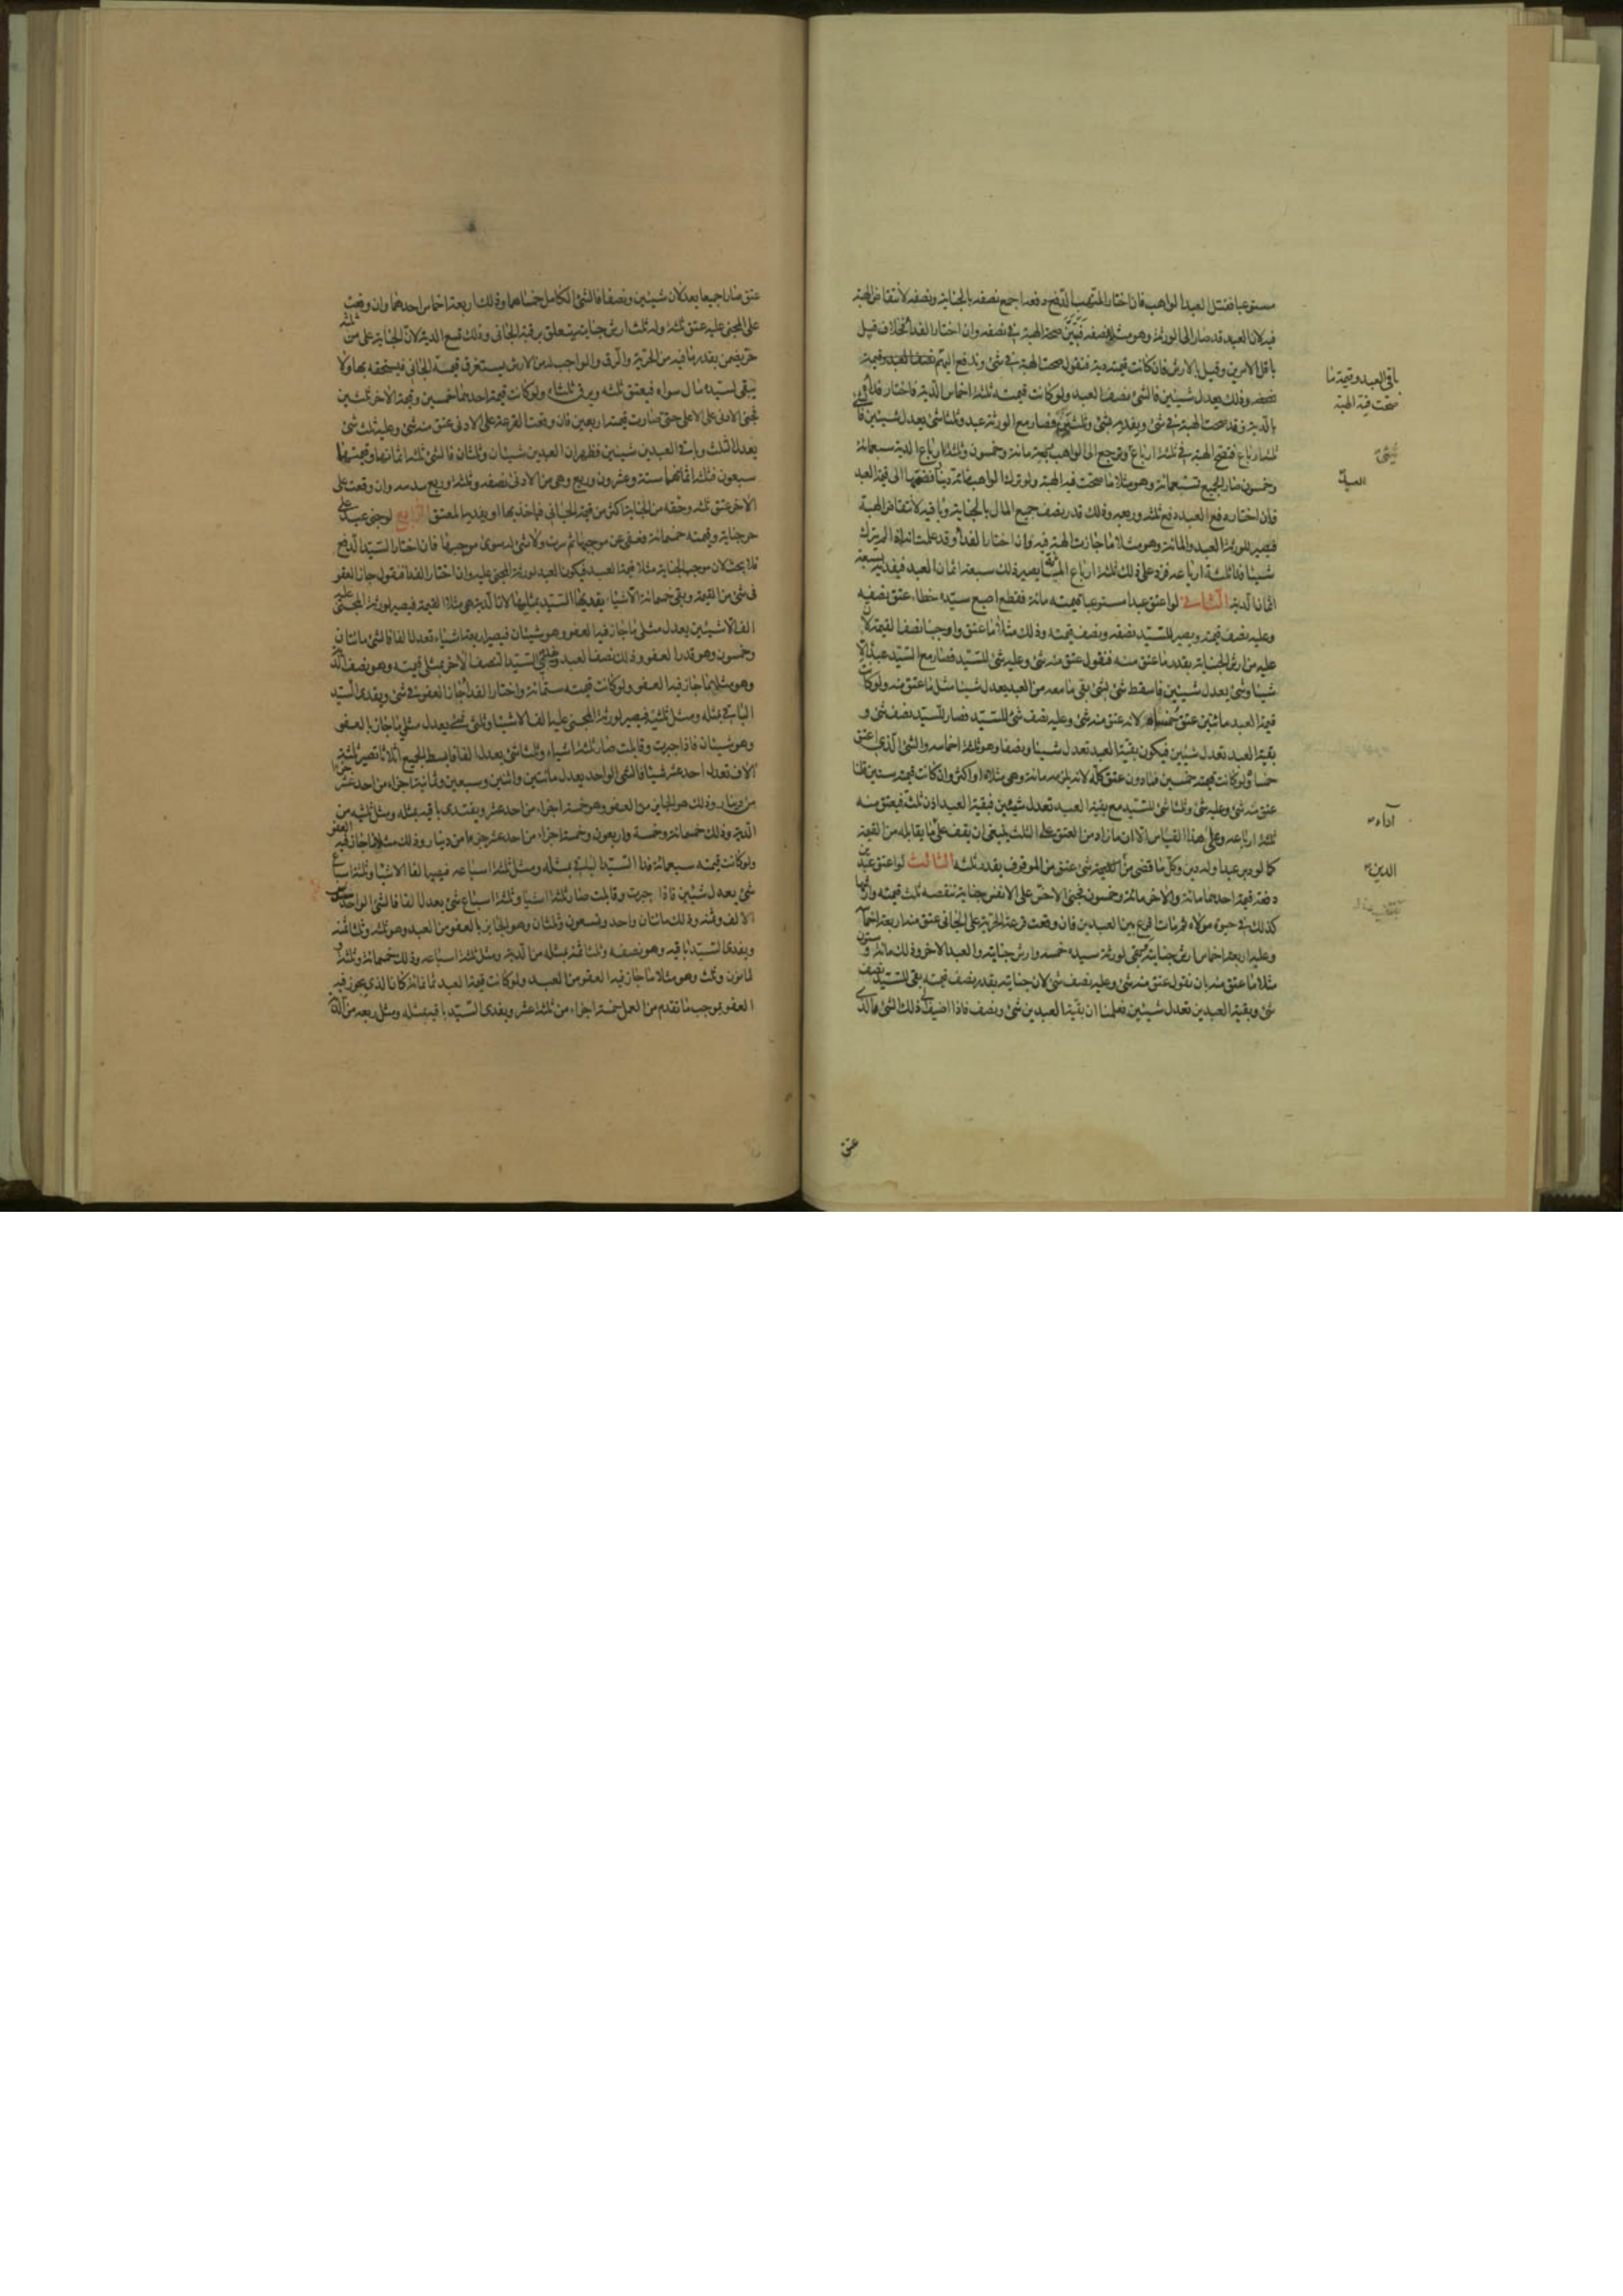 مستوعبا فقتل العبد الواهب فان اختار المتهب الدفع دفعه اجمع نصفه بالجناية ونصفه لانتقاض الهبة
فيه لان العبد قد صار الى الورثة وهو مثلا نصفه فتبين صحة الهبة في نصفه وان اختار الفداء فخلاف قيل
باقل الامرين وقيل بالارش فان كانت قيمته دية فنقول صحت الهبة في شئ وتدفع اليهم نصف العبد وقيمة
نصفه وذلك يعدل شيئين فالشئ نصف العبد ولو كانت قيمته ثلثة اخماس الدية فاختار فداه
بالدية فقد صحت الهبة في شئ ويفديه بشئ وثلثي فصار مع الورثة عبد وثلثا شئ يعدل شيئين
ثلثة ارباع فتصح الهبة في ثلثة ارباع ويرجع الى الواهب مائة وخمسون وثلثة ارباع الدية سبعمائة
وخمسون صار الجميع تسعمائة وهو مثلا ما صحت فيه الهبة ولو ترك الواهب مائة دينار فضمها الى قيمة العبد
فان اختار دفع العبد دفع ثلثه وربعه وذلك قدر نصف جميع المال بالجناية وباقيه لانتقاض الهبة
فيصير للورثة العبد والمائة وهو مثلا ما جازت الهبة فيه وان اختار الفداء وقد علمت انه لو لم يترك
شيئا فداه ثلثة ارباعه فزد على ذلك ثلثة ارباع المائة يصير ذلك سبعة اثمان العبد فيفديه بسبعة
اثمان الدية الثاني لو اعتق عبدا مستوعبا قيمته مائة فقطع اصبع سيده خطا عتق نصفه
وعليه نصف قيمته ويصير للسيد نصفه ونصف قيمته وذلك مثلا ما عتق واوجبنا نصف القيمة لان
عليه من ارش الجناية بقدر ما عتق منه فنقول عتق منه شئ وعليه شئ للسيد فصار مع السيد عبد الا
شيئا وشئ يعدل شيئين فاسقط شئ بشئ بقي ما معه من العبد يعدل شيئا مثل ما عتق منه ولو كانت
قيمة العبد مائتين عتق خمساه لانه عتق منه شئ وعليه نصف شئ للسيد فصار للسيد نصف شئ و
بقية العبد تعدل شيئين فيكون بقية العبد تعدل شيئا ونصفا وهو ثلثة اخماسه والشئ الذي عتق
خمساه ولو كانت قيمته خمسين فما دون عتق كله لانه يلزمه مائة وهي مثلاه او اكثر وان كانت قيمته ستين قلنا
عتق منه شئ وعليه شئ وثلثا شئ للسيد مع بقية العبد تعدل شيئين فبقية العبد اذن ثلثه فيعتق منه
ثلثة ارباعه وعلى هذا القياس الا ان ما زاد من العتق على الثلث ينبغي ان يقف على ما يقابله من القيمة
كما لو دبر عبدا وله دين وكل ما قضى من القيمة شئ عتق من الموقوف بقدر ثلثه الثالث لو اعتق عبدين
دفعة قيمة احدهما مائة والاخر مائة وخمسون فجنى الاخس على الانفس جناية تنقصه ثلث قيمته وارشها
كذلك في حيوة مولاه ثم مات اقرع بين العبدين فان وقعت قرعة الحرية على الجاني عتق منه اربعة اخماسه
وعليه اربعة اخماس ارش جنايته تبقى لورثة سيده خمسه وارش جنايته والعبد الاخر وذلك مائة وستون و
مثلا ما عتق منه بان نقول عتق منه شئ وعليه نصف شئ لان جنايته بقدر نصف قيمته بقي للسيد نصف
شئ وبقية العبدين تعدل شيئين فعلمنا ان بقية العبدين شئ ونصف فاذا اضيف الى ذلك الشئ الذي
عتق
باقي العبد وقيمة ما
صحت فيه الهبة
شئ
العبد
اداء
الدين
عتق صارا جميعا يعدلان شيئين ونصفا فالشئ الكامل خمساهما وذلك اربعة اخماس احدهما وان وقعت
على المجني عليه عتق ثلثه وله ثلث ارش جنايته يتعلق برقبة الجاني وذلك تسع الدية لان الجناية على من ثلثه
حر يضمن بقدر ما فيه من الحرية والرق والواجب له من الارش يستغرق قيمة الجاني فيستحقه بها ولا
يبقى لسيده مال سواه فيعتق ثلثه ويرق ثلثاه ولو كانت قيمة احدهما خمسين وقيمة الاخر ثلثين
فجنى الادنى على الاعلى حتى صارت قيمته اربعين فان وقعت القرعة على الادنى عتق منه شئ وعليه ثلث شئ
يعدل الثلث وباقي العبدين شيئين فظهر ان العبدين شيئان وثلثان فالشئ ثلثة اثمانها وقيمتهما
سبعون فثلثة اثمانهما ستة وعشرون وربع وهي من الادنى نصفه وثلثه وربع سدسه وان وقعت على
الاخر عتق ثلثه وحقه من الجناية اكثر من قيمة الجاني فياخذ بها او يفديه المعتق الرابع لو جنى عبد على
حر جناية وقيمته خمسمائة وعفى عن موجبها ثم سرت ولا شئ له سوى موجبها فان اختار السيد الدفع
فلا بحث لان موجب الجناية مثلا قيمة العبد فيكون العبد لورثة المجني عليه وان اختار الفداء فنقول جاز العفو
في شئ من القيمة وبقي خمسمائة الا شيئا يفديها السيد بمثليها لان الدية هي مثلا القيمة فيصير لورثة المجني عليه
الف الا شيئين يعدل مثلي ما جاز فيه العفو وهو شيئان فيصير اربعة اشياء تعدل الفا فالشئ مائتان
وخمسون وهو قدر العفو وذلك نصف العبد ويفدي السيد النصف الاخر بمثلي قيمته وهو نصف الدية
وهو مثلا ما جاز فيه العفو ولو كانت قيمته ستمائة واختار الفداء جاز العفو في شئ ويفدي السيد
الباقي بمثله ومثل ثلثيه فيصير لورثة المجني عليه الف الا شيئا وثلثي شئ يعدل مثلي ما جاز بالعفو
وهو شيئان فاذا جبرت وقابلت صار ثلثة اشياء وثلثا شئ يعدل الفا فابسط الجميع اثلاثا تصير ثلثة
الاف تعدل احد عشر شيئا فالشئ الواحد يعدل مائتين واثنين وسبعين وثمانية اجزاء من احد عشر جزءا
من دينار وذلك هو الجايز من العفو وهو خمسة اجزاء من احد عشر ويفتدى باقيه بمثله ومثل ثلثيه من
الدية وذلك خمسمائة وخمسة واربعون وخمسة اجزاء من احد عشر جزءا من دينار وذلك مثلا ما جاز فيه العفو
ولو كانت قيمته سبعمائة فدا السيد الباقي بمثله ومثل ثلثة اسباعه فيصير الفا الا شيئا وثلثة اسباع
شئ يعدل شيئين فاذا جبرت وقابلت صار ثلثة اشياء وثلثة اسباع شئ يعدل الفا فالشئ الواحد سدس
الالف وثمنه وذلك مائتان واحد وتسعون وثلثان وهو الجايز بالعفو من العبد وهو ثلثه وثلثا ثمنه
ويفدي السيد باقيه وهو نصفه وثلث ثمنه بمثله من الدية ومثل ثلثة اسباعه وذلك خمسمائة وثلثة و
ثمانون وثلث وهو مثلا ما جاز فيه العفو من العبد ولو كانت قيمة العبد ثمانمائة كان الذي يجوز فيه
العفو بموجب ما تقدم من العمل خمسة اجزاء من ثلثة عشر ويفدي السيد باقيه بمثله ومثل ربعه من الدية